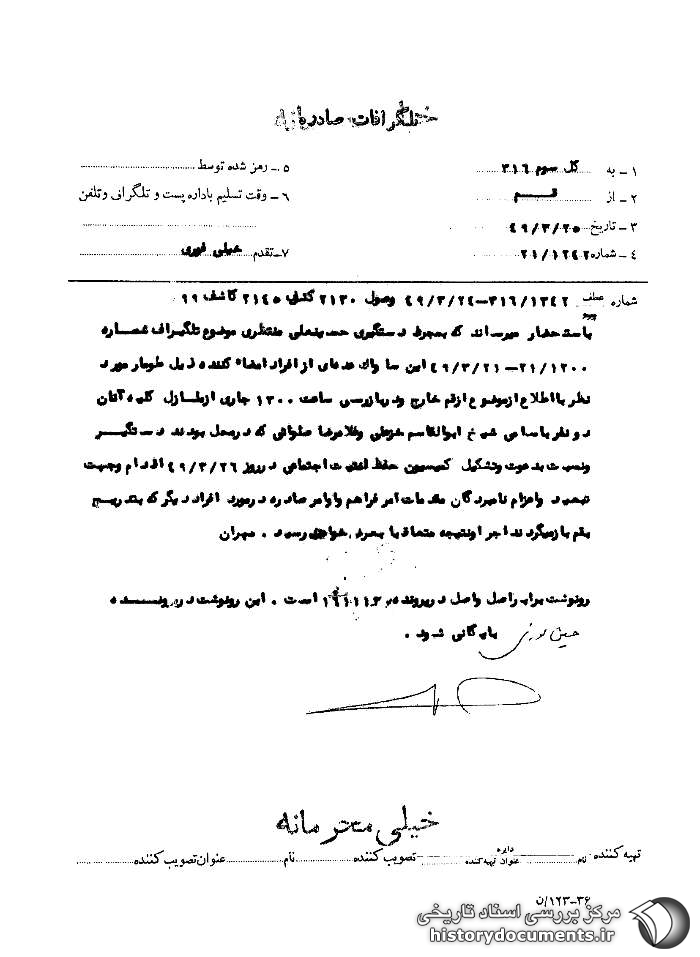 تلگرافات صادره
۱ – به کل سوم ۳۱۶
۲ – از قم
۳ – تاریخ ۴۹/۳/۲۵
۴ – شماره ۲۱/۱۲۴۲
۵ – رمز شده توسط
۶ – وقت تسلیم باداره پست و تلگرافی وتلفن
۷ – تقدم خیلی فوری
شماره ۳۱۶/۱۳۴۲–۴۹/۳/۲۴ وصول ۲۱۳۰ کشف ۲۱۴۵ کاشف ۹۹
باستحضار میرساند که بمجرد دستگیری حسینعلی منتظری موضوع تلگراف شماره
۲۱/۱۲۰۰–۴۹/۳/۲۱ این ساواک عده‌ای از افراد امضاء کننده ذیل طومار مورد
نظر بااطلاع ازموضوع ازقم خارج ودربازرسی ساعت ۱۳۰۰ جاری ازمنازل کلیه آنان
دو نفر باسامی شیخ ابوالقاسم خزعلی وغلامرضا صلواتی که درمحل بودند دستگیر
ونسبت بدعوت وتشکیل کمیسیون حفظ امنیت اجتماعی درروز ۴۹/۳/۲۶ اقدام وجهت
تبعید واعزام نامبردگان مقدمات امر فراهم واوامر صادره درمورد افراد دیگر که بتدریج
بقم بازمیگردند اجرا ونتیجه متعاقبا بعرض خواهد رسید . مهران
رونوشت برابر اصل واصل در پرونده ۱۶۱۱۱۳ است . این رونوشت در پرونده
بایگانی شود .
خیلی محرمانه
تهیه کننده نام دایره عنوان تهیه کننده تصویب کننده نام عنوان تصویب کننده
۳۶–۱۲۳/ن
مرکز بررسی اسناد تاریخی
historydocuments.ir